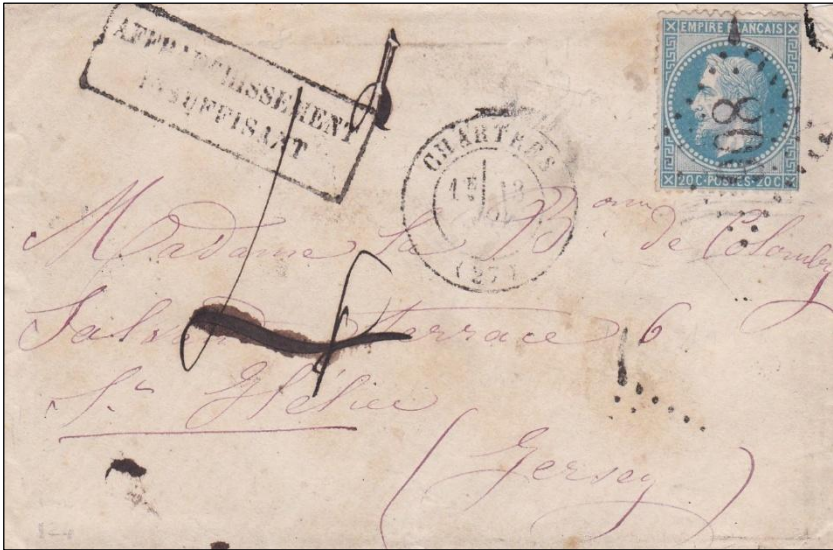 AFFRANCHISSEMENT
INSUFFISANT
EMPIRE FRANCAIS
20C·POSTES·20C
CHARTRES
1E 13
(27)
Madame la Bonne de Colomby
terrace 6
St Hélier
(Jersey)